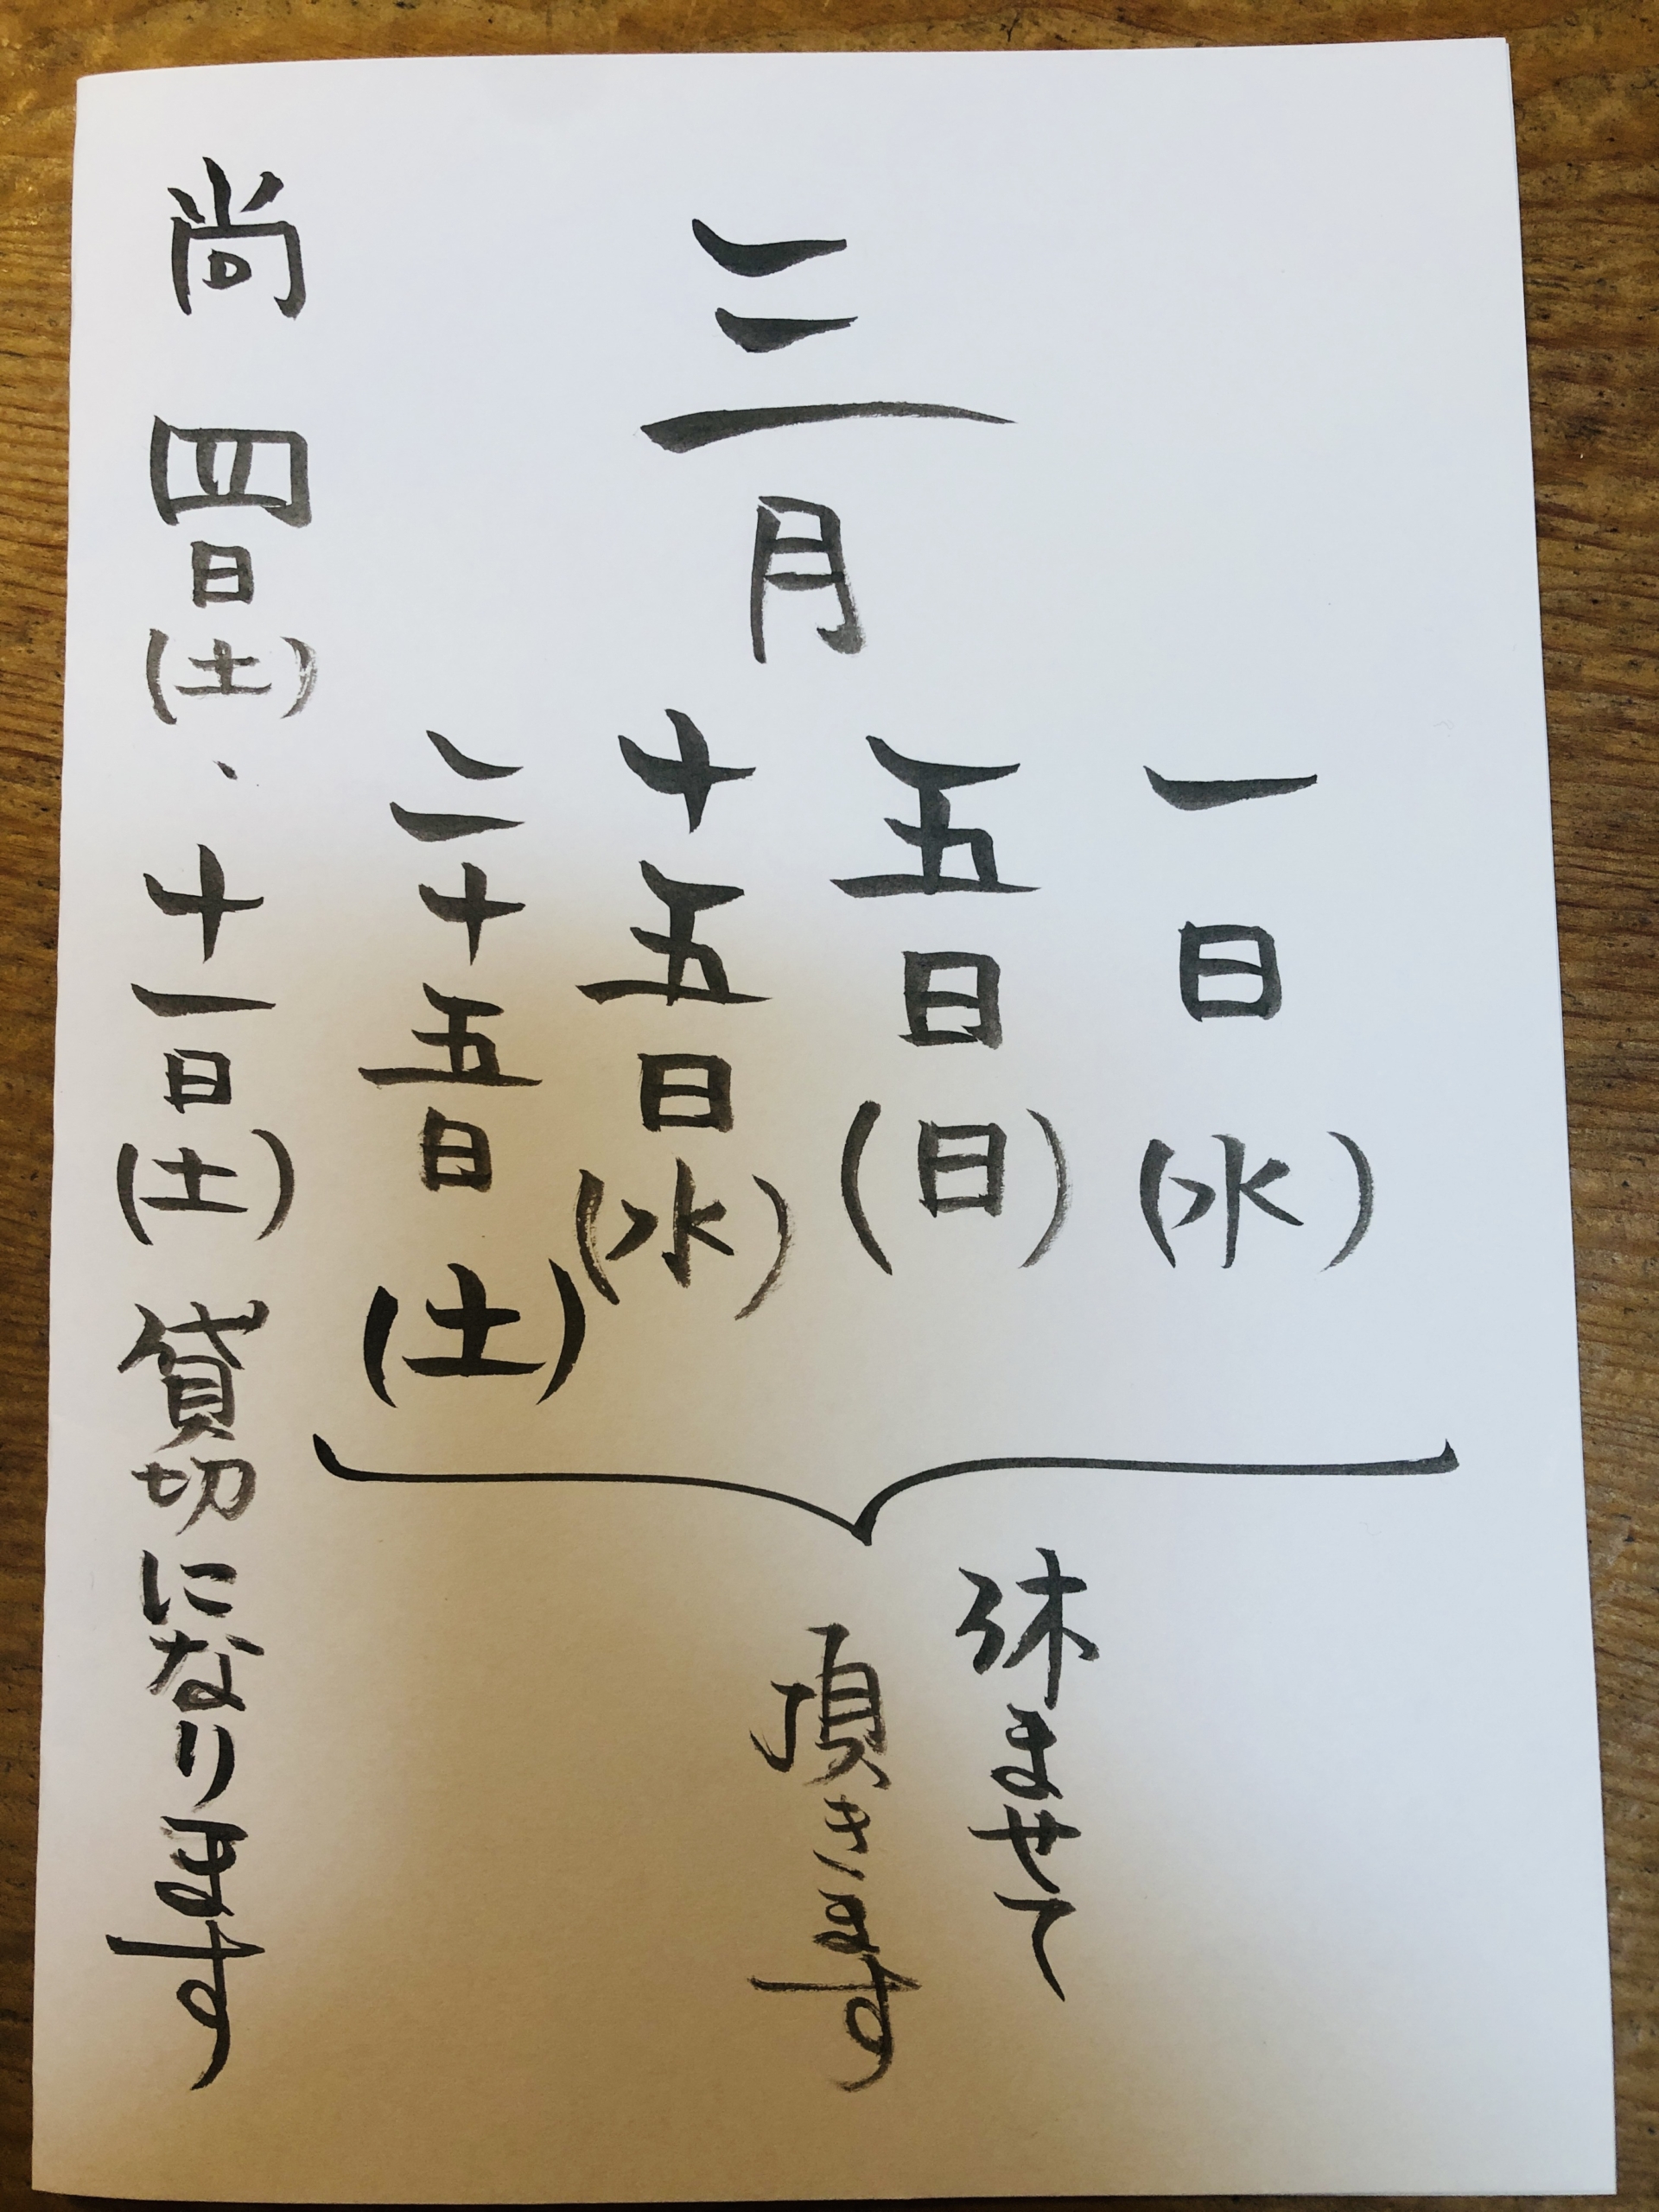 三月
一日(水)
五日(日)
十五日(水)
二十五日(土)
休ませて
頂きます
尚 四日(土)、十一日(土) 貸切になります